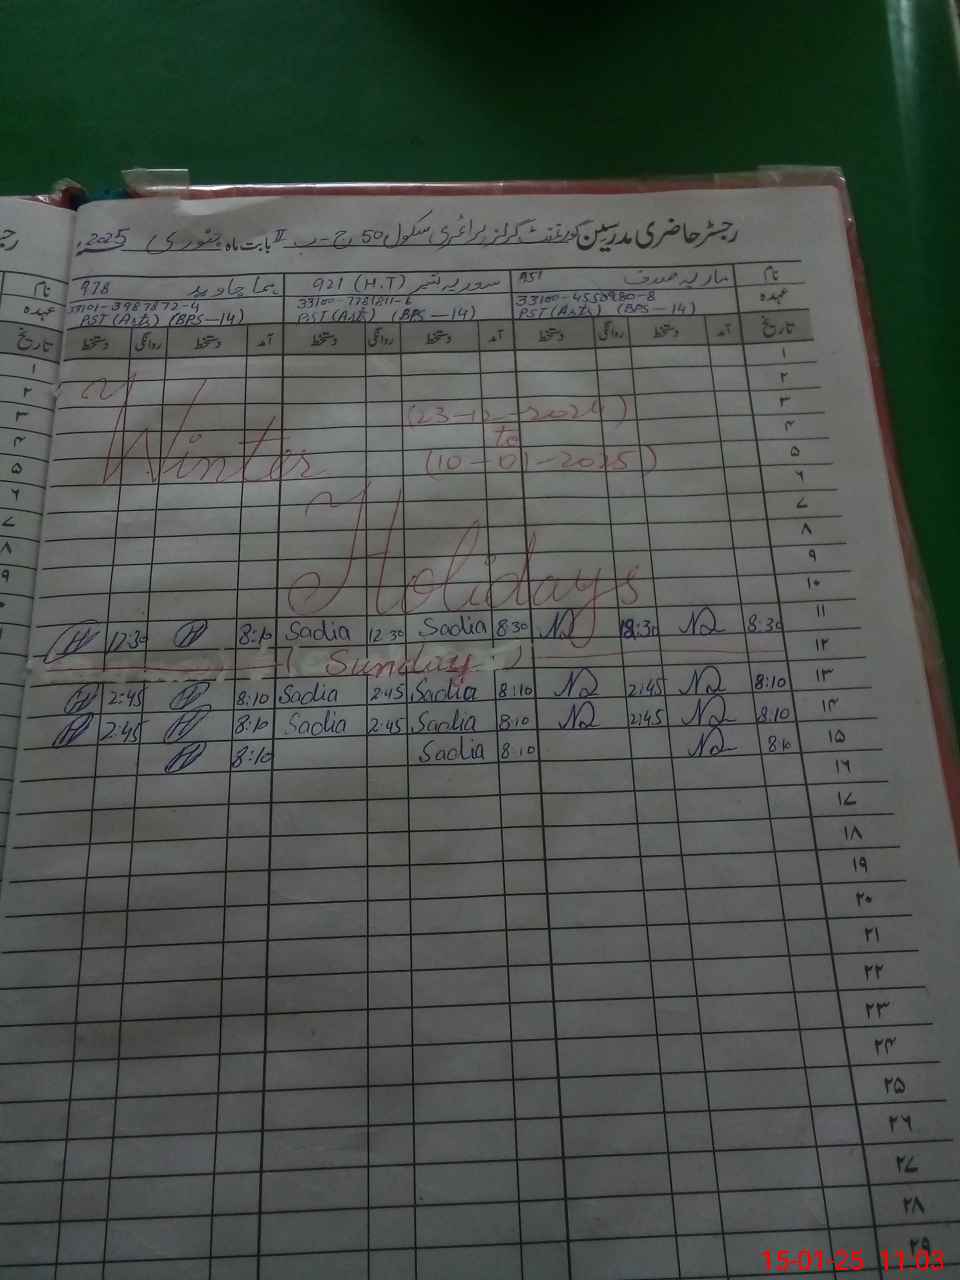 رجسٹر حاضری مدرسین گورنمنٹ گرلز پرائمری سکول 50 ج-ب II بابت ماہ جنوری 2025ء
نام ماریہ صدف 951 921 (H.T) ہما جاوید 978
عہدہ 33100-4550980-8 33101-3987872-4
PST (Arts) (BPS-14) PST (Arts) (BPS-14) PST (Arts) (BPS-14)
تاریخ آمد دستخط روانگی دستخط آمد دستخط روانگی دستخط آمد دستخط روانگی دستخط
۱
۲
۳ (23-12-2024)
۴ to
۵ Winter (10-01-2025)
۶
۷
۸
۹
۱۰ Holidays
۱۱ 8:30 8:30 Sadia 12:30 Sadia 8:10 12:30
۱۲ Sunday
۱۳ 8:10 2:45 8:10 Sadia 2:45 Sadia 8:10 2:45
۱۴ 8:10 2:45 8:10 Sadia 2:45 Sadia 8:10 2:45
۱۵ 8:10 8:10 Sadia 8:10
۱۶
۱۷
۱۸
۱۹
۲۰
۲۱
۲۲
۲۳
۲۴
۲۵
۲۶
۲۷
۲۸
۲۹
15-01-25 11:03